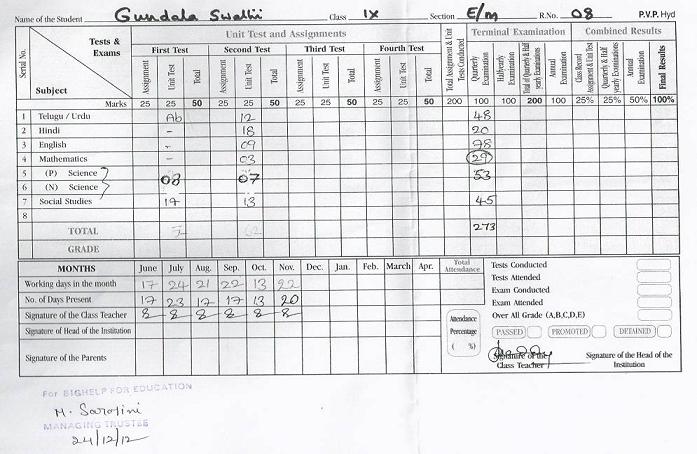 Name of the Student Gundala Swathi Class IX Section E/m R.No. 08 P.V.P. Hyd
Serial No. Tests & Exams Subject Unit Test and Assignments Total Assignment & Unit Tests Conducted Terminal Examination Combined Results
First Test Second Test Third Test Fourth Test
Assignment Unit Test Total Assignment Unit Test Total Assignment Unit Test Total Assignment Unit Test Total Quarterly Examination Halfyearly Examination Total of Quarterly & Half yearly Examinations Annual Examination Class Record Assignment & Unit Test Quarterly & Half yearly Examinations Annual Examination Final Results
Marks 25 25 50 25 25 50 25 25 50 25 25 50 200 100 100 200 100 25% 25% 50% 100%
1 Telugu / Urdu Ab 12 48
2 Hindi - 18 20
3 English - 09 78
4 Mathematics - 03 29
5 (P) Science 08 07 53
6 (N) Science
7 Social Studies 17 13 45
8
TOTAL 273
GRADE
MONTHS June July Aug. Sep. Oct. Nov. Dec. Jan. Feb. March Apr. Total Attendance
Working days in the month 17 24 21 22 13 22
No. of Days Present 17 23 17 17 13 20
Signature of the Class Teacher
Signature of Head of the Institution
Signature of the Parents
Attendance Percentage ( %)
Tests Conducted
Tests Attended
Exam Conducted
Exam Attended
Over All Grade (A,B,C,D,E)
PASSED PROMOTED DETAINED
Signature of the Class Teacher Signature of the Head of the Institution
For BIGHELP FOR EDUCATION
M. Sarojini
MANAGING TRUSTEE
24/12/12